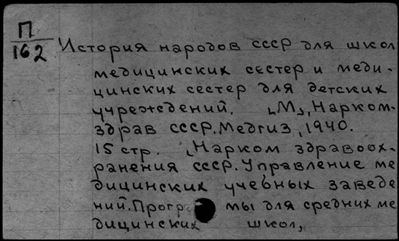 П
162
История народов СССР для школ
медицинских сестер и меди-
цинских сестер для детских
учреждений. [М], Нарком-
здрав СССР. Медгиз, 1940.
15 стр. [Нарком здравоох-
ранения СССР. Управление ме
дицинских учебных заведе
ний. Прогр мы для средних ме
дицинских школ,